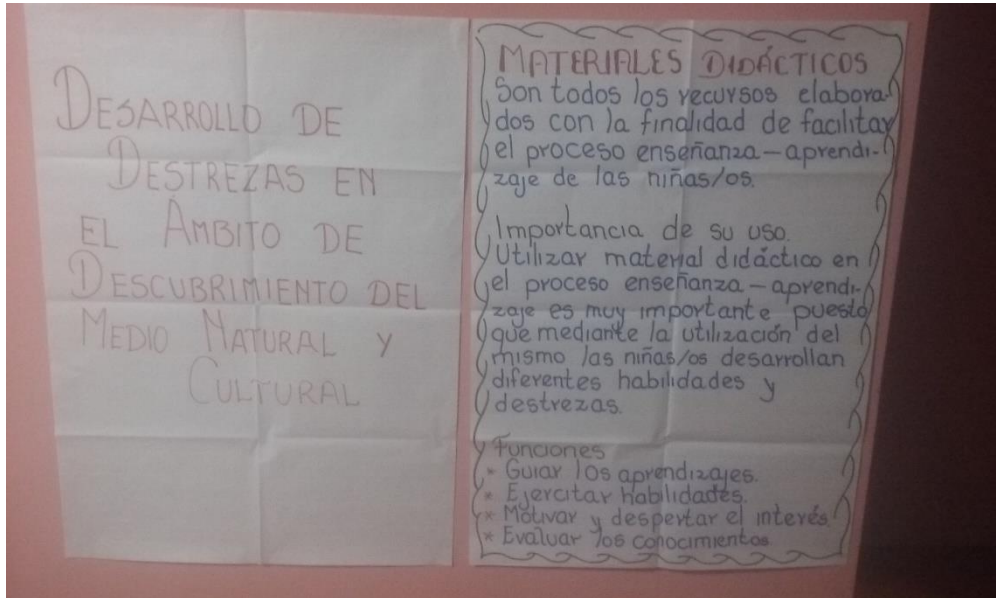 DESARROLLO DE
DESTREZAS EN
EL ÁMBITO DE
DESCUBRIMIENTO DEL
MEDIO NATURAL Y
CULTURAL
MATERIALES DIDÁCTICOS
Son todos los recursos elabora-
dos con la finalidad de facilitar
el proceso enseñanza-aprendi-
zaje de las niñas/os.
Importancia de su uso.
Utilizar material didáctico en
el proceso enseñanza-aprendi-
zaje es muy importante puesto
que mediante la utilización del
mismo las niñas/os desarrollan
diferentes habilidades y
destrezas.
Funciones
* Guiar los aprendizajes.
* Ejercitar habilidades.
* Motivar y despertar el interés.
* Evaluar los conocimientos